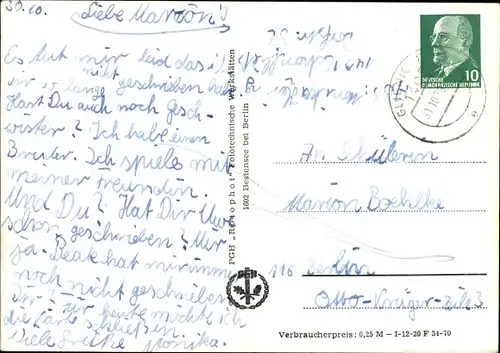 30.10.
Liebe Marion!
Es tut mir leid das ich
dir so lange nicht geschrieben habe.
Hast Du auch noch Gesch-
wister? Ich habe einen
Bruder. Ich spiele mit
meiner Freundin.
Und Du? Hat Dir Uwe
schon geschrieben? Mir
ja. Beate hat mir immer
noch nicht geschrieben
Dir? Für heute möchte ich
die Karte schließen.
Viele Grüße Monika.
PGH „Rotophot" Fototechnische Werkstätten
1602 Bestensee bei Berlin
10
DEUTSCHE
DEMOKRATISCHE REPUBLIK
An Schülerin
Marion Boehlke
116 Berlin
Otto-Krüger-Zeile 3
Verbraucherpreis: 0,25 M – I-12-20 F 54-70